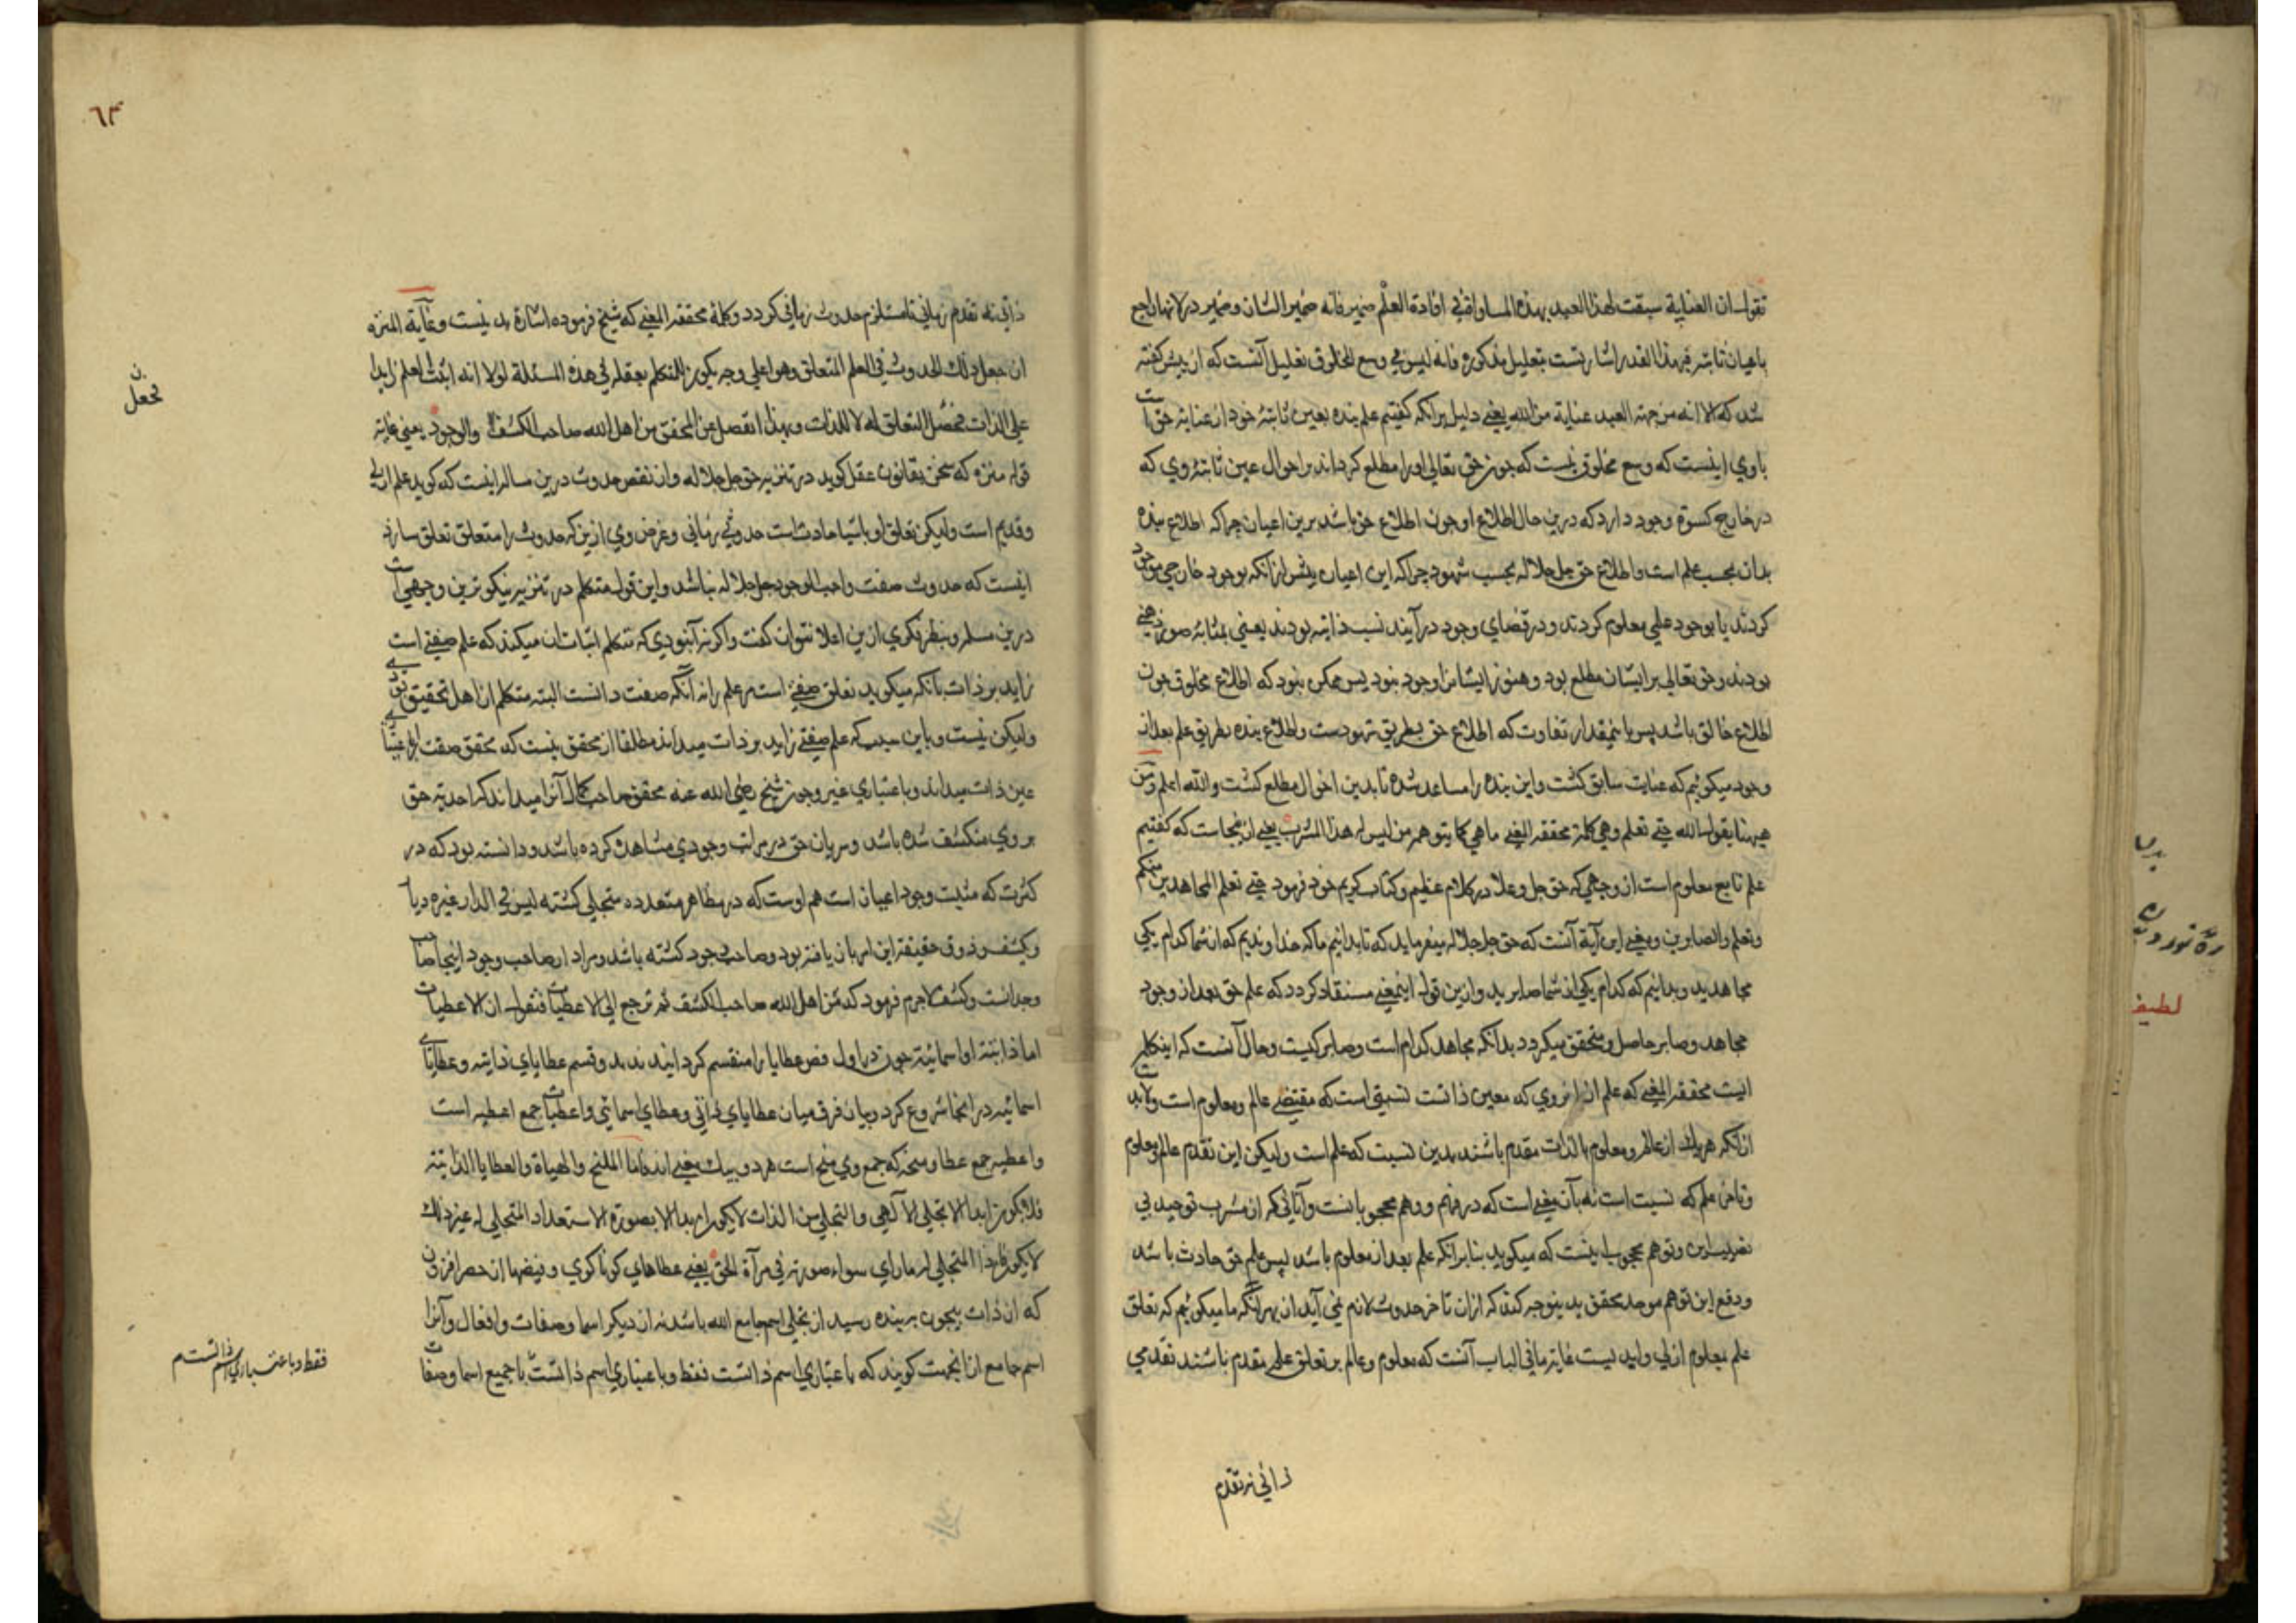 نقول ان العناية سبقت لهذا العبد بهذه المساواة في افادة العلم ضمير فانه ضمير الشان وضمير در لانها راجع
باعيان ثابته فبهذا القدر اشارتست بتعليل مذكوره فانه ليس في وسع المخلوق تعليل آنست كه از پيش كفته
شد كه الا انه من جهة العبد عناية من الله يعني دليل برانكه كفتيم علم بنده بعين ثابتهٔ خود از عنايت حق است
باوي اينست كه وسع مخلوق نيست كه چون حق تعالى اورا مطلع كرداند بر احوال عين ثابتهٔ وي كه
در خارج كسوة وجود دارد كه درين حال اطلاع او چون اطلاع حق باشد برين اعيان چرا كه اطلاع بنده
بدان بحسب علم است واطلاع حق جل جلاله بحسب شهود چرا كه اين اعيان پيش از انكه بوجود خارجي موجود
كردند يا بوجود علمي معلوم كردند ودر قضاي وجود در آيند نسب ذاتيه بودند يعني بمثابهٔ صور ذهني
بودند وحق تعالى بر ايشان مطلع بود وهنوز ايشانرا وجود نبود پس ممكن نبود كه اطلاع مخلوق چون
اطلاع خالق باشد پس با نمقدار تفاوت كه اطلاع حق بطريق شهودست واطلاع بنده بطريق علم بعد از
وجود ميكوئيم كه عنايت سابق كشت واين بنده را مساعد شده تا بدين احوال مطلع كشت والله اعلم ومن
هيهنا يقول الله حتى نعلم وهي كلمة محققة المعنى ما هي كما يتوهم من ليس له هذا المشرب يعني از ينجاست كه كفتيم
علم تابع معلوم است از وجهي كه حق جل وعلا در كلام عظيم وكتاب كريم خود فرمود حتى نعلم المجاهدين منكم
ونعلم والصابرين ومعني اين آية آنست كه حق جل جلاله ميفرمايد كه تا بدانيم ما كه خداونديم كه از شما كدام يكي
مجاهديد وبدانيم كه كدام يكي از شما صابريد وازين قول اينمعني مستفاد كردد كه علم حق بعد از وجود
مجاهد وصابر حاصل ومتحقق ميكردد بدانكه مجاهد كدام است وصابر كيست وحال آنست كه اينكلمه
ايت محققة المعنى كه علم از انروي كه معين ذاتست نسبتي است كه مقتضي عالم ومعلوم است ولابد
از انكه هر يك از عالم ومعلوم بالذات مقدم باشند بدين نسبت كه علم است وليكن اين تقدم عالم ومعلوم
وتاخر علم كه نسبت است نه بآن معني است كه در فهم ووهم محجوبانست وآناني كه از مشرب توحيد بي
نصيبند وتوهم محجوب اينست كه ميكويد بنابرانكه علم بعد از معلوم باشد پس علم حق حادث باشد
ودفع اين توهم موحد محقق بدينوجه كند كه ازان تاخر حدوث لازم نمي آيد از بهر آنكه ما ميكوئيم كه تعلق
علم بمعلوم ازلي وابديست غاية ما في الباب آنست كه معلوم وعالم بر تعلق علم مقدم باشند تقدمي
ذاتي نه تقدم
٦٣
ذاتي نه تقدم زماني تا مستلزم حدوث زماني كردد وكلمهٔ محققة المعنى كه شيخ فرموده اشارة بدينست وغاية المنزه
ان جعل ذلك الحدوث في العلم المتعلق وهو اعلى وجه يكون للمتكلم بعقله في هذه المسئلة لولا انه اثبت العلم زايدا
على الذات فجعل التعلق له لا للذات وبهذا انفصل عن المحقق من اهل الله صاحب الكشف والوجود يعني غايت
قول منزه كه سخن بقانون عقل كويد در تنزيه حق جل جلاله واز نقص حدوث درين مساله اينست كه كويد علم ازلي
وقديم است وليكن تعلق او باشيا حادث است حدوثي زماني وغرض وي ازين كه حدوث را متعلق تعلق سازد
اينست كه حدوث صفت واجب الوجود جل جلاله نباشد واين قول متكلم در تنزيه نيكوترين وجهي است
درين مسله وبنظر فكري ازين اعلا نتوان كفت واكر نه آنبودي كه متكلم اثبات ان ميكند كه علم صفتي است
زايد بر ذات بآنكه ميكويد تعلق صفتي است مر علم را نه آنكه صفت دانست البته متكلم از اهل تحقيق بودي
وليكن نيست وباين سبب كه علم صفتي زايد بر ذات ميداند مطلقا از محقق نيست كه محقق صفت را باعتباري
عين ذات ميداند وباعتباري غير وچون شيخ رضي الله عنه محقق صاحب كمال آنرا ميداند كه احديت حق
بروي منكشف شده باشد وسريان حق در مراتب وجودي مشاهده كرده باشد ودانسته بود كه در
كثرت كه مثبت وجود اعيان است هم اوست كه در مظاهر متعدده متجلي كشته ليس في الدار غيره ديار
وبكشف وذوق حقيقة اين سريان يافته بود وصاحب وجود كشته باشد ومراد از صاحب وجود اينجا صاحب
وجدانست وكشف لاجرم فرمود كه من اهل الله صاحب الكشف ثم نرجع الى الاعطيات فنقول ان الاعطيات
اما ذاتية او اسمائية چون در اول فص عطايا را منقسم كردانيدند بدو قسم عطاياي ذاتيه وعطاياي
اسمائيه در اينجا شروع كرد در بيان فرق ميان عطاياي ذاتي وعطاياي اسمائي واعطيات جمع اعطيه است
واعطيه جمع عطا ومنحه كه جمع وي منح است هر دو بيك معني اند فاما المنح والهبات والعطايا الذاتية
فلا يكون ابدا الا تجلي الآلهي والتجلي من الذات لا يكون ابدا الا بصورة الاستعداد المتجلى له غير ذلك
لا يكون فاذا المتجلى له ما راى سواء صورته في مرآة الحق يعني عطاهاي كوناكوني وفيضها از حصر افزون
كه از ذات بيچون به بنده رسيد از تجلي اسم جامع الله باشد نه از ديكر اسما وصفات وافعال وآنرا
اسم جامع از اينجهت كويند كه باعتباري اسم ذاتست فقط وباعتباري اسم ذاتست با جميع اسما وصفات
نجعل
فقط وباعتباري اسم ذاتست
لطيف